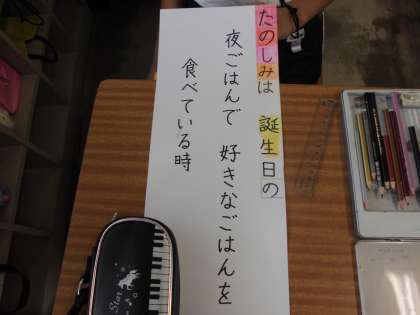 たのしみは 誕生日の
夜ごはんで 好きなごはんを
食べている時
Star